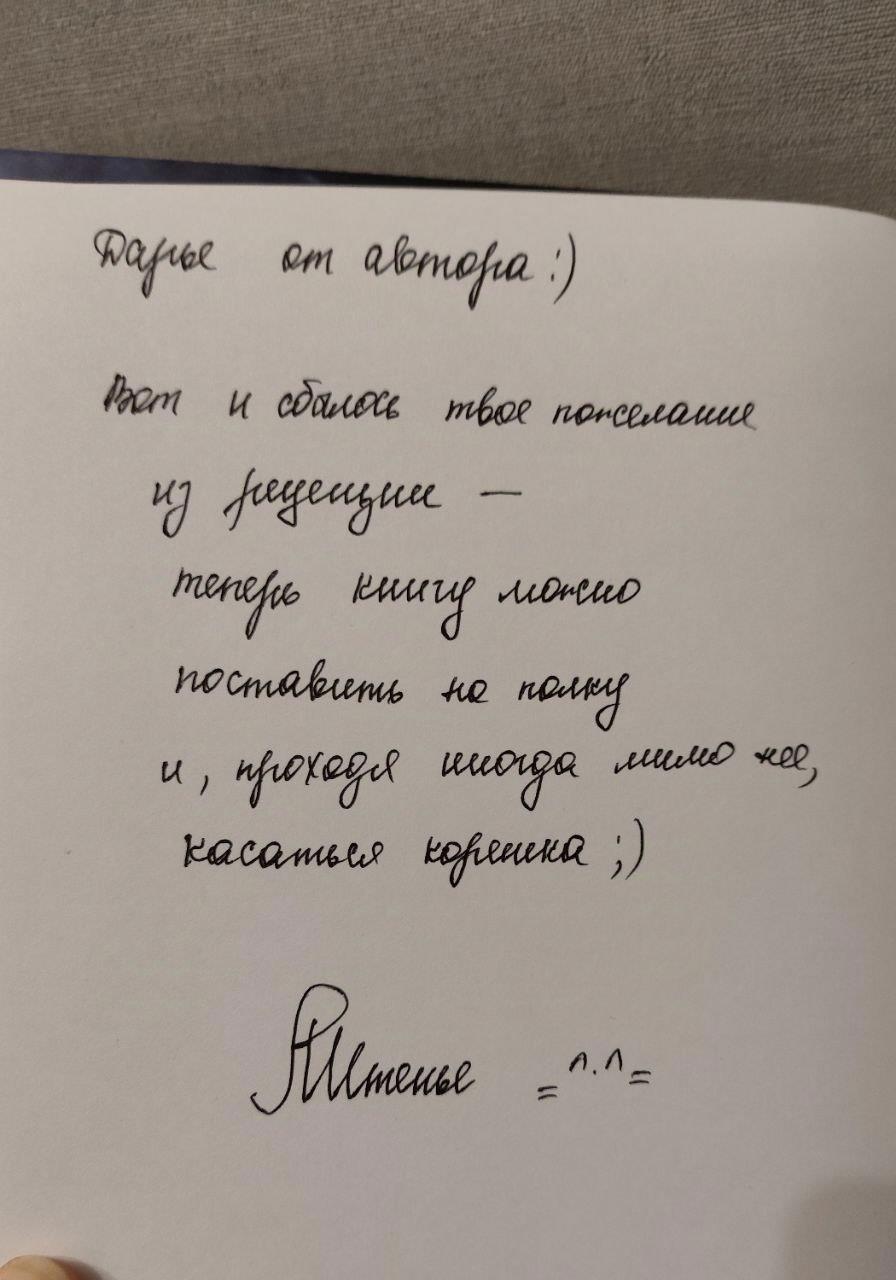 Дарье от автора :)
Вот и сбылось твое пожелание
из рецензии —
теперь книгу можно
поставить на полку
и, проходя иногда мимо нее,
касаться корешка ;)
=^.^=